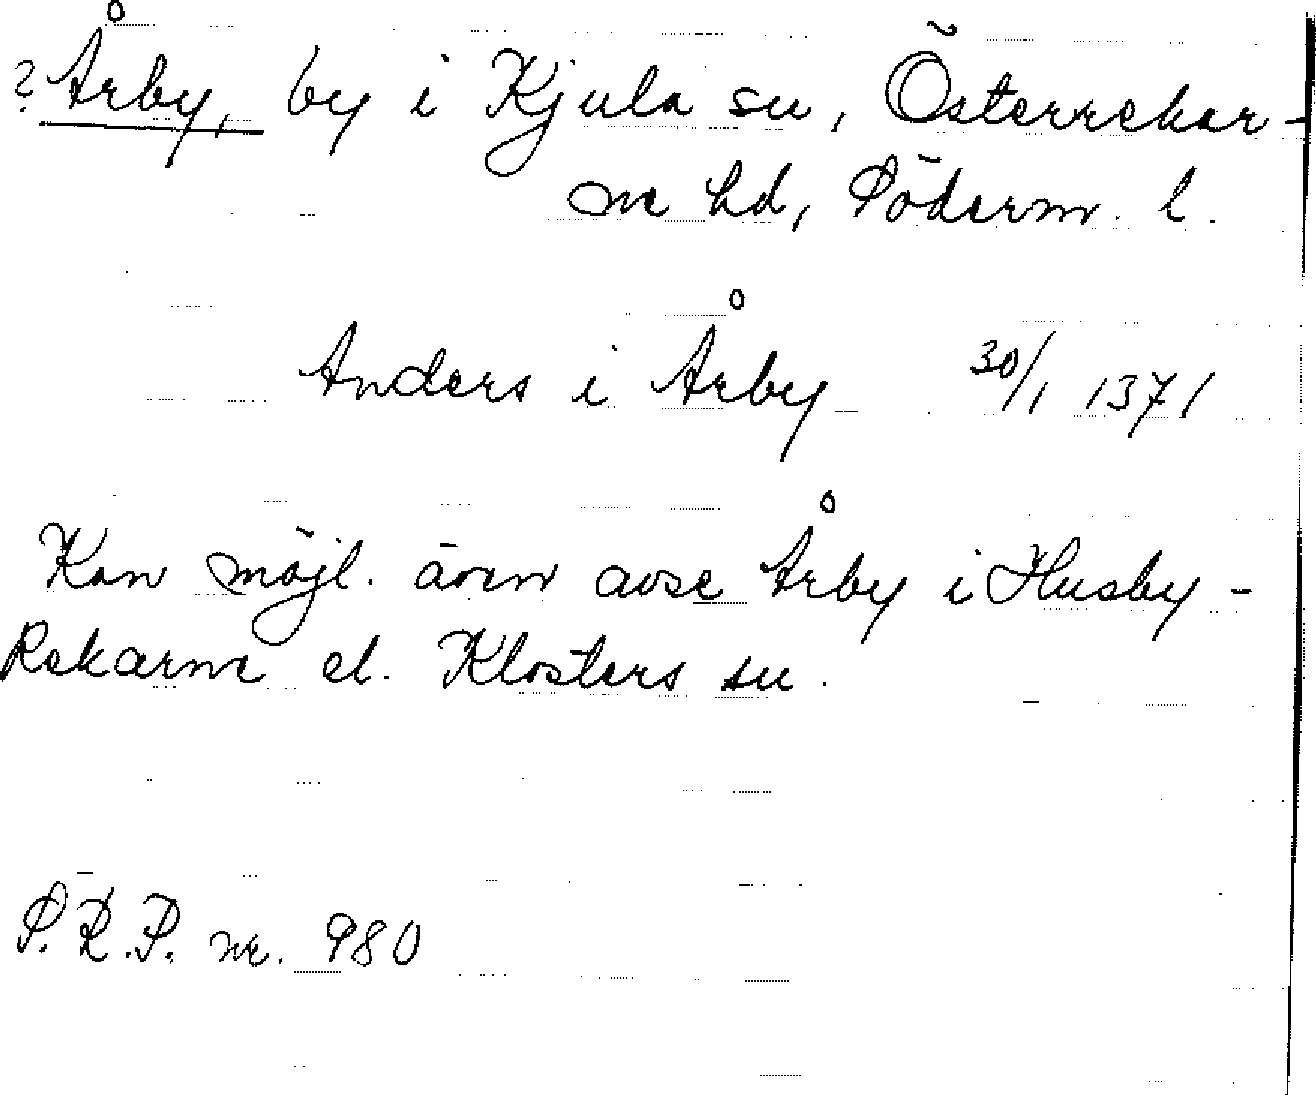 ? Årby, by i Kjula sn, Österrekar-
ne hd, Söderm. l.
Anders i Årby 30/1 1371
Kan möjl. även avse Årby i Husby-
Rekarne el. Klosters sn.
S.R.P. nr. 980